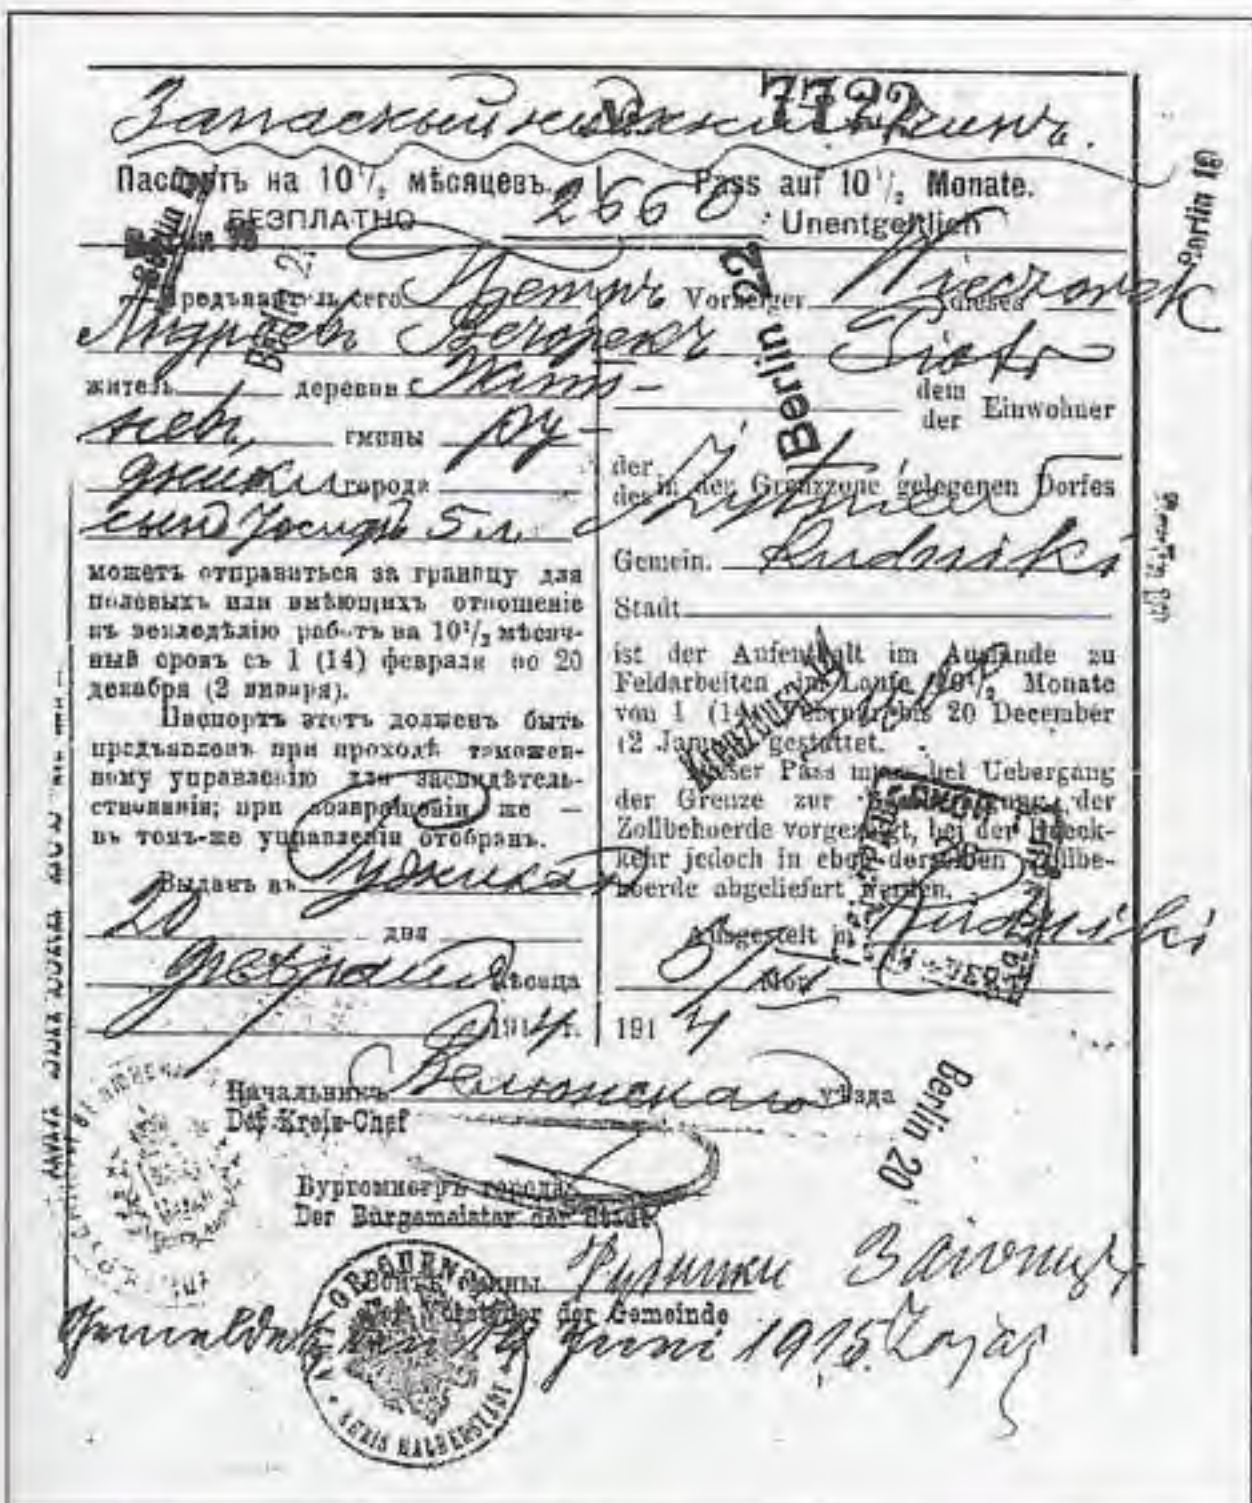 Запасный нижній чинъ.
№ 7722
Паспортъ на 10 1/2 мѣсяцевъ.
БЕЗПЛАТНО
2660
Предъявитель сего Петръ
Андреевъ Вечорекъ
житель деревни Жит-
невъ, гмины Ру-
дники города
сынъ Іосифъ 5 л.
можетъ отправиться за границу для
полевыхъ или имѣющихъ отношеніе
къ земледѣлію работъ на 10 1/2 мѣсяч-
ный срокъ съ 1 (14) февраля по 20
декабря (2 января).
Паспортъ этотъ долженъ быть
предъявленъ при проходѣ таможен-
ному управленію для засвидѣтель-
ствованія; при возвращеніи же —
въ томъ-же управленіи отобранъ.
Выданъ въ Рудникахъ
20 дня
февраля мѣсяца
1914 г.
Pass auf 10 1/2 Monate.
Unentgeltlich
Vorzeiger dieses Wieczorek
Piotr
dem
der Einwohner
der
des in der Grenzzone gelegenen Dorfes
Żytniew
Gemein. Rudniki
Stadt
ist der Aufenthalt im Auslande zu
Feldarbeiten im Laufe 10 1/2 Monate
von 1 (14) Februar bis 20 December
(2 Januar) gestattet.
Dieser Pass muss bei Uebergang
der Grenze zur der
Zollbehoerde vorgezeigt, bei der Rueck-
kehr jedoch in eben derselben Zollbe-
hoerde abgeliefert werden.
Ausgestelt in Rudniki
Mon
1914
Начальникъ Велюнскаго уѣзда
Der Kreis-Chef
Бургомистръ города
Der Bürgemeister der Stadt
Войтъ гмины Рудники Заіонцъ
Der Vorsteher der Gemeinde
Gemeldet den 14 Juni 1915. Zając
KREIS HALBERSTADT
Berlin 22
Berlin 20
Berlin 19